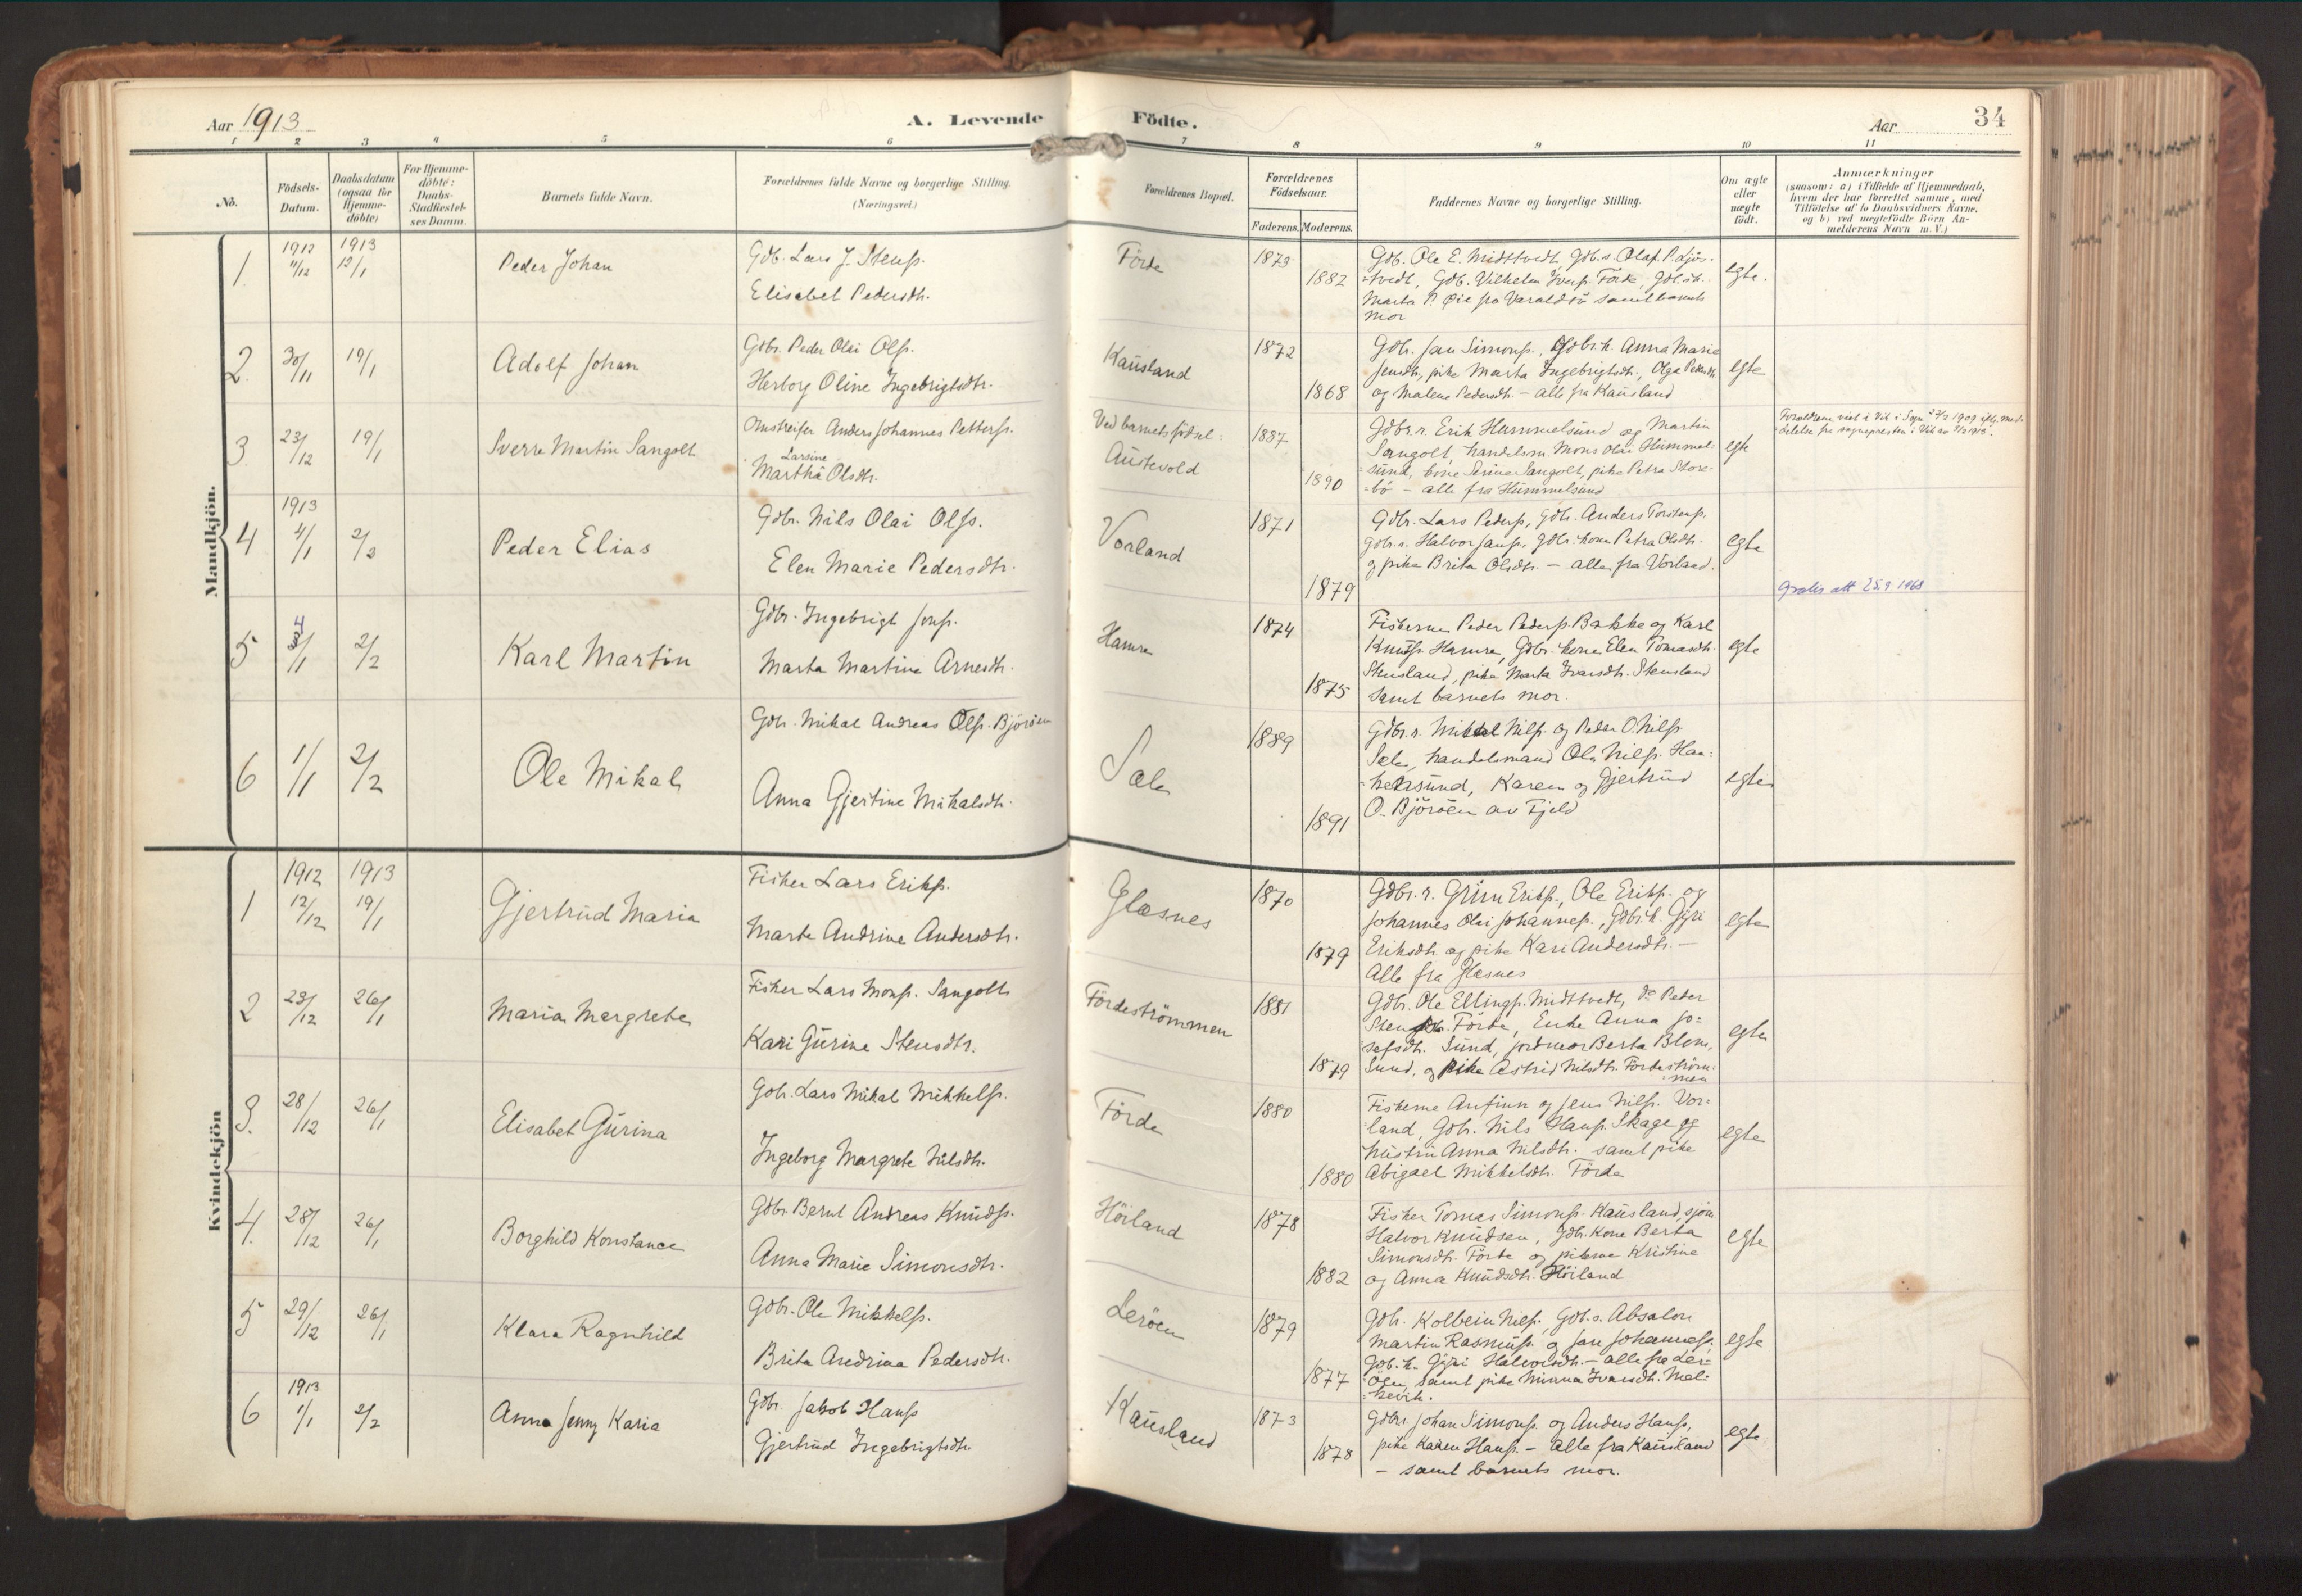 Aar 1913
A. Levende Födte.
Aar
34
1 2 3 4 5 6 7 8 9 10 11
No.
Födsels-Datum.
Daabsdatum (ogsaa for Hjemme-döbte)
For Hjemme-döbte: Daabs-Stadfæstel-ses Datum.
Barnets fulde Navn.
Forældrenes fulde Navne og borgerlige Stilling.
(Næringsvei.)
Forældrenes Bopæl.
Forældrenes Födselsaar.
Faderens. Moderens.
Faddernes Navne og borgerlige Stilling.
Om ægte eller uægte födt.
Anmærkninger
(saasom: a) i Tilfælde af Hjemmedaab,
hvem der har forrettet samme, med
Tilföielse af to Daabsvidners Navne,
og b) ved uægtefödte Börn An-
melderens Navn m. V.)
Mandkjön.
1
1912 11/12
1913 12/1
Peder Johan
Gdb. Lars J. Stenss.
Elisabet Pedersdtr.
Förde
1873
1882
Gdb. Ole E. Midttvedt, Gdb.s. Olaf P. Ljös-
-tvedt, Gdb. Vilhelm Iverss. Förde, Gdb.
Marta P. Øie fra Varaldsö samt barnets
mor
egte.
2
30/11
19/1
Adolf Johan
Gdbr. Peder Olai Olss.
Herborg Oline Ingebrigtsdtr.
Kausland
1872
1868
Gdb. Jan Simonss., Gdbr.k. Anna Marie
Jensdtr., pike Marta Ingebrigtsdtr., Olga Pedersdtr.
og Malene Pedersdtr. - alle fra Kausland
egte
3
23/12
19/1
Sverre Martin Sangolt
Omstreifer Anders Johannes Petterss.
Larsine
Martha Olsdtr.
Ved barnets födsel:
Austevold
1887
1890
Gdbr.r. Erik Hummelsund og Martin
Sangolt, handelsm. Mons Olai Hummel-
-sund, kone Serine Sangolt, pike Petra Store-
-bö - alle fra Hummelsund
egte
Forældrene viet i Vik i Sogn 1909 iflg. med-
delelse fra sognepresten i Vik av 3/2 1913.
4
1913 4/1
2/2
Peder Elias
Gdbr. Nils Olai Olss.
Elen Marie Pedersdtr.
Vorland
1871
1879
Gdbr. Lars Pederss, Gdb. Anders Torstenss,
Gdbr.s. Halvor Janss, Gdbr. kone Petra Olsdtr.
og pike Brita Olsdtr. - alle fra Vorland.
egte
Gratis att 1968
5
4/1
2/2
Karl Martin
Gdbr. Ingebrigt Jonss.
Marta Martine Arnesdtr.
Hamre
1874
1875
Fiskerne Peder Pederss. Bakke og Karl
Knuts. Hamre, Gdbr. kone Elen Tomasdtr.
Stensland, pike Marta Ivarsdtr. Stensland
samt barnets mor.
egte
6
1/1
2/2
Ole Mikal
Gdb. Mikal Andreas Olss. Björöen
Anna Gjertine Mikalsdtr.
Sæle
1889
1891
Gdbr.r. Mikkel Nilss. og Peder O. Nilss
Sæle, handelsmand Ole Nilss. Haa-
-kelsund, Karen og Gjertrud
O. Björöen av Fjeld
egte
Kvindekjön
1
1912 12/12
1913 19/1
Gjertrud Maria
Fisker Lars Erikss.
Marte Andrine Andersdtr.
Glesnes
1870
1879
Gdbr.r. Grim Erikss., Ole Erikss. og
Johannes Olai Johanness., Gdbr.k. Gyri
Eriksdtr. og pike Kari Andersdtr. -
Alle fra Glesnes
egte
2
23/12
26/1
Maria Margrete
Fisker Lars Monss. Sangolt
Kari Gurine Stensdtr.
Fördeströmmen
1881
1879
Gdbr. Ole Ellingss. Midttvedt, do Peder
Stenss. Förde, Enke Anna Jo-
sefsdtr. Sund, jordmor Berta Blom,
Sund, og pike Astrid Nilsdtr. Fördeström-
men
egte
3.
28/12
26/1
Elisabet Gurina
Gdb. Lars Mikal Mikkelss.
Ingeborg Margrete Nilsdtr.
Förde
1880
1880
Fiskerne Anfinn og Jens Nilss. Vor-
land, Gdb. Nils Hanss. Skage og
hustru Anna Nilsdtr. samt pike
Abigael Mikkelsdtr. Förde
egte
4.
28/12
26/1
Borghild Konstance
Gdbr. Bernt Andreas Knudss.
Anna Marie Simonsdtr.
Höiland
1878
1882
Fisker Tomas Simonss. Kausland, sjöm.
Halvor Knudsen, Gdb. kone Berta
Simonsdtr. Förde og pikerne Kristine
og Anna Knudsdtr. Höiland
egte
5
29/12
26/1
Klara Ragnhild
Gdbr. Ole Mikkelss.
Brita Andrina Pedersdtr.
Leröen
1879
1877
Gdb. Kolbein Nilss. Gdb.s. Absalon
Martin Rasmuss. og Jan Johanness.,
Gdb.k. Gyri Halvorsdtr. - alle fra Ler-
öen, samt pike Minna Ivarsdtr. Mel-
kevik.
egte
6
1913 1/1
2/2
Anna Jenny Karia
Gdbr. Jakob Hanss
Gjertrud Ingebrigtsdtr.
Kausland
1873
1878
Gdbr. Johan Simonss. og Anders Hanss,
pike Karen Hanss. - alle fra Kausland
- samt barnets mor.
egte